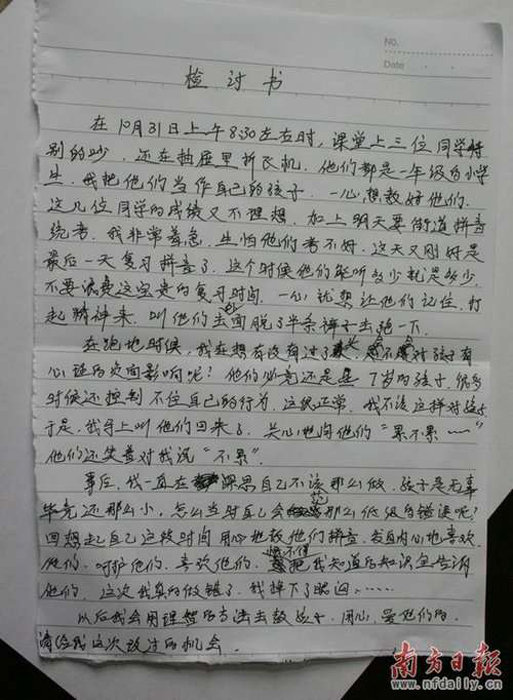 No.
Date
检讨书
在10月31日上午8:30左右时，课堂上三位同学特
别的吵，还在抽屉里折飞机，他们都是一年级的小学
生，我把他们当作自己的孩子，一心想教好他们，
这几位同学的成绩又不理想，加上明天要街道拼音
统考，我非常着急，生怕他们考不好，这天又刚好是
最后一天复习拼音了，这个时候他们能听多少就是多少，
不要浪费这宝贵的复习时间，一心就想让他们记住，打
起精神来，叫他们去外面脱了半条裤子去跑一下。
在跑地时候，我在想有没有过了头，会不会对孩子有
心理的负面影响呢？他们必竟还是 7岁的孩子，很多
时候还控制不住自己的行为，这很正常，我不该这样对孩子
于是，我马上叫他们回来了，关心地问他们“累不累……”
他们还笑着对我说“不累”。
事后，我一直在深思自己不该那么做，孩子是无辜
毕竟还那么小，怎么当时自己会犯那么低级的错误呢？
回想起自己这段时间用心地教他们拼音，发自内心地喜欢
他们，呵护他们，喜欢他们，恨不得把我知道的知识全告诉
他们，这次我真的做错了，我掉下了眼泪……
以后我会用理智的方法去教孩子，用心，爱他们的，
请给我这次改过的机会。
南方日报
www.nfdaily.cn